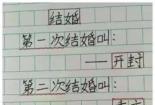 结婚
第一次结婚叫：
——开封
第二次结婚叫：